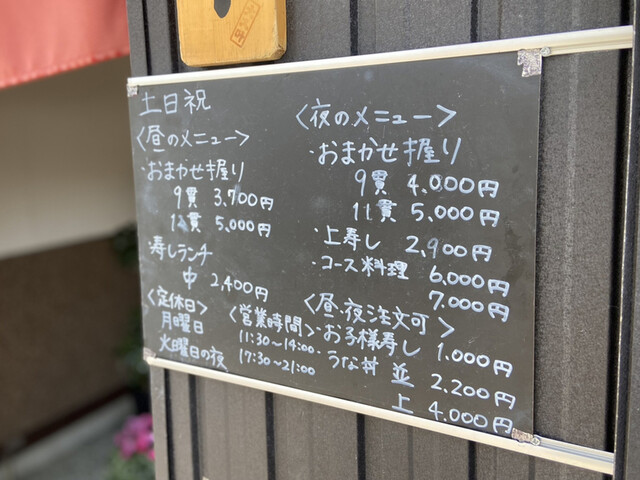 土日祝
〈昼のメニュー〉
・おまかせ握り
9貫 3,700円
12貫 5,000円
・寿しランチ
中 2,400円
〈定休日〉
月曜日
火曜日の夜
〈営業時間〉
11:30~14:00
17:30~21:00
〈夜のメニュー〉
・おまかせ握り
9貫 4,000円
11貫 5,000円
・上寿し 2,900円
・コース料理 6,000円
7,000円
〈昼・夜注文可〉
・お子様寿し 1,000円
・うな丼 並 2,200円
上 4,000円